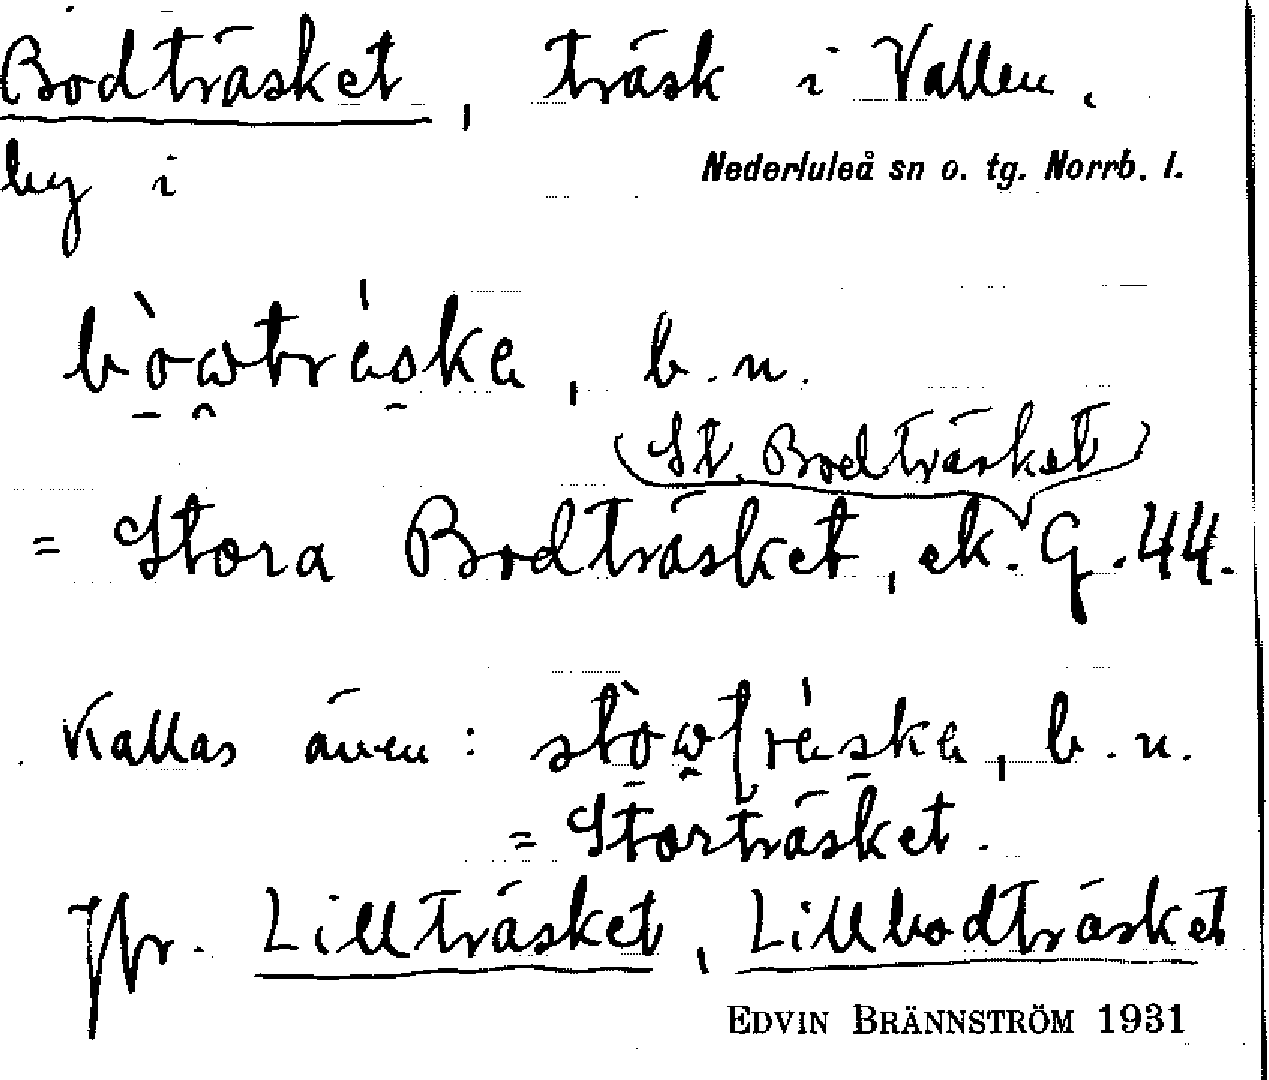 Bodträsket, träsk i Vallen,
by i Nederluleå sn o. tg. Norrb. l.
b. n.
(St. Bodträsket)
= Stora Bodträsket, ek. G. 44.
Kallas även: b. n.
= Storträsket.
Jfr. Lillträsket, Lillbodträsket
EDVIN BRÄNNSTRÖM 1931